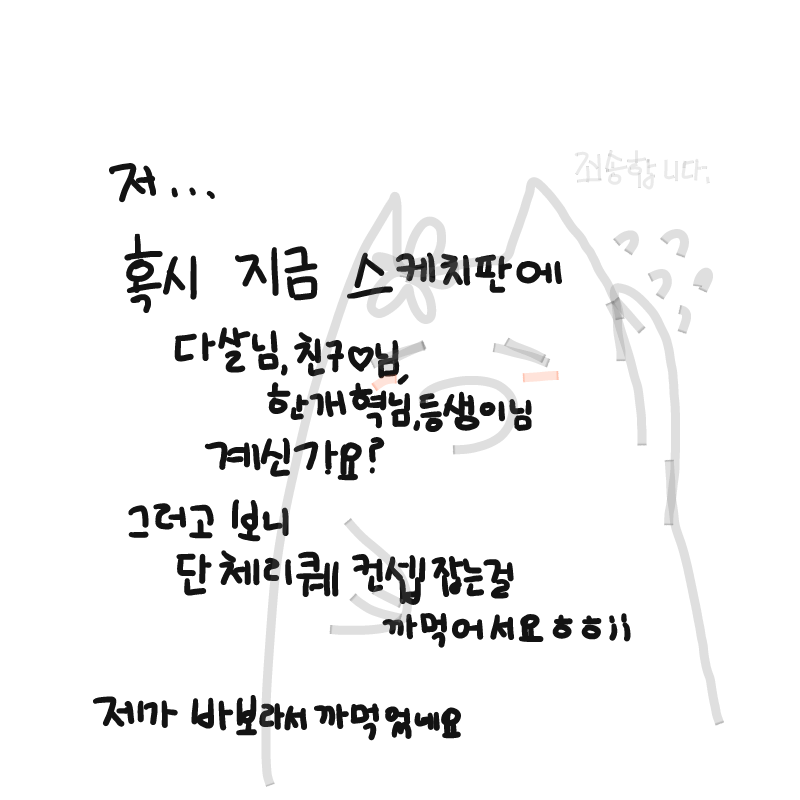 죄송함니다.
저...
혹시 지금 스케치판에
다살님, 친구♡님,
한개혁님, 등생이님
계신가요?
그러고 보니
단체리퀘 컨셉 잡는걸
까먹어서요ㅎㅎ;;
제가 바보라서 까먹었네요